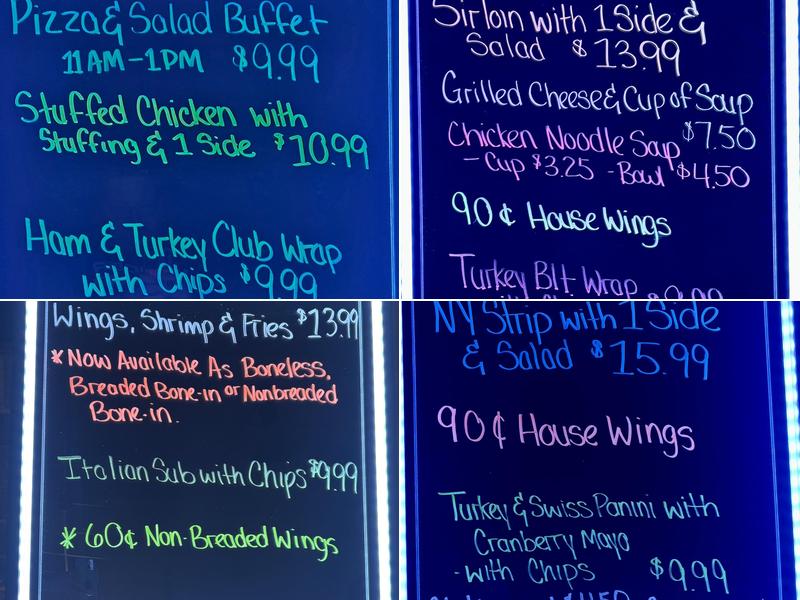 Pizza & Salad Buffet
11AM-1PM $9.99
Stuffed Chicken with
Stuffing & 1 Side $10.99
Ham & Turkey Club Wrap
with Chips $9.99
Sirloin with 1 Side &
Salad $13.99
Grilled Cheese & Cup of Soup
$7.50
Chicken Noodle Soup
- Cup $3.25 - Bowl $4.50
90¢ House Wings
Turkey Blt Wrap
Wings, Shrimp & Fries $13.99
* Now Available As Boneless,
Breaded Bone-in or Nonbreaded
Bone-in.
Italian Sub with Chips $9.99
* 60¢ Non-Breaded Wings
NY Strip with 1 Side
& Salad $15.99
90¢ House Wings
Turkey & Swiss Panini with
Cranberry Mayo
- with Chips $9.99